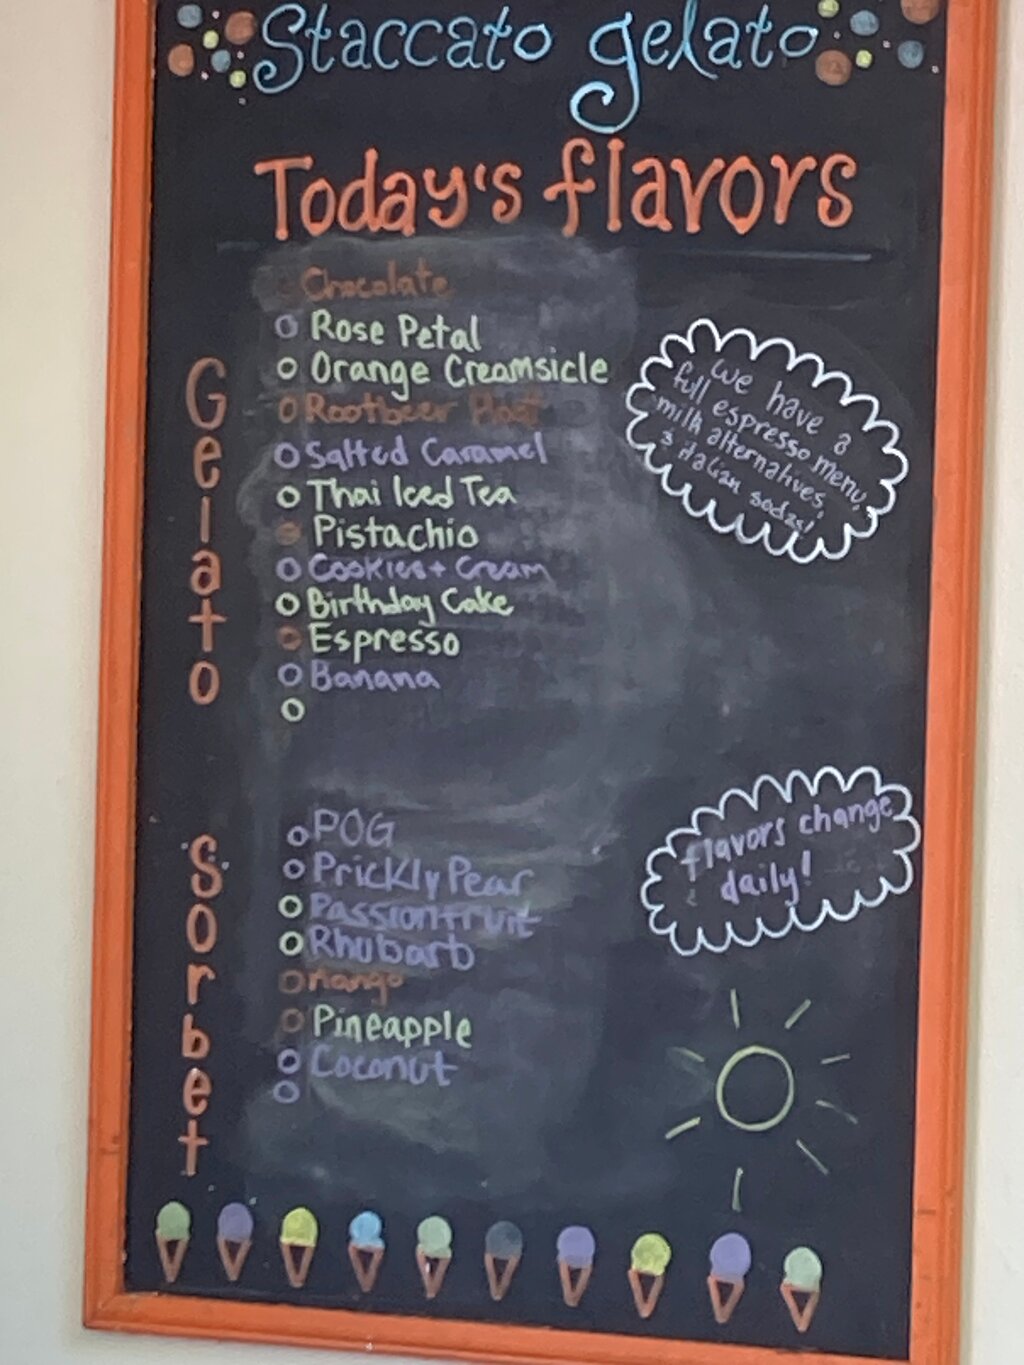 Staccato gelato
Today's flavors
Gelato
Chocolate
Rose Petal
Orange Creamsicle
Rootbeer Float
Salted Caramel
Thai Iced Tea
Pistachio
Cookies + Cream
Birthday Cake
Espresso
Banana
we have a
full espresso menu,
milk alternatives,
& italian sodas!
Sorbet
POG
Prickly Pear
Passionfruit
Rhubarb
Mango
Pineapple
Coconut
flavors change
daily!